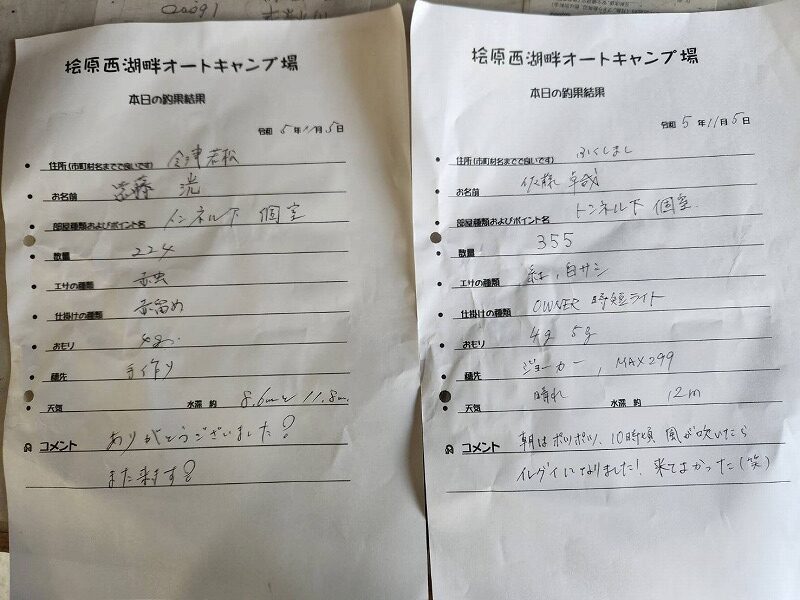 00091
桧原西湖畔オートキャンプ場
本日の釣果結果
令和 5年11月5日
住所(市町村名までで良いです) 会津若松
お名前 遠藤 洸
部屋種類およびポイント名 トンネル下 個室
数量 224
エサの種類 赤虫
仕掛けの種類 赤留め
おもり 4g
穂先 手作り
天気 水深 約 8.6mと11.8m
コメント ありがとうございました?
また来ます?
桧原西湖畔オートキャンプ場
本日の釣果結果
令和 5年11月5日
住所(市町村名までで良いです) ふくしまし
お名前 佐藤 卓哉
部屋種類およびポイント名 トンネル下 個室
数量 355
エサの種類 紅,白サシ
仕掛けの種類 OWNER 時短ライト
おもり 4g 5g
穂先 ジョーカー, MAX299
天気 晴れ 水深 約 12m
コメント 朝はポツポツ、10時頃 風が吹いたら
イレグイになりました! 来てよかった(笑)